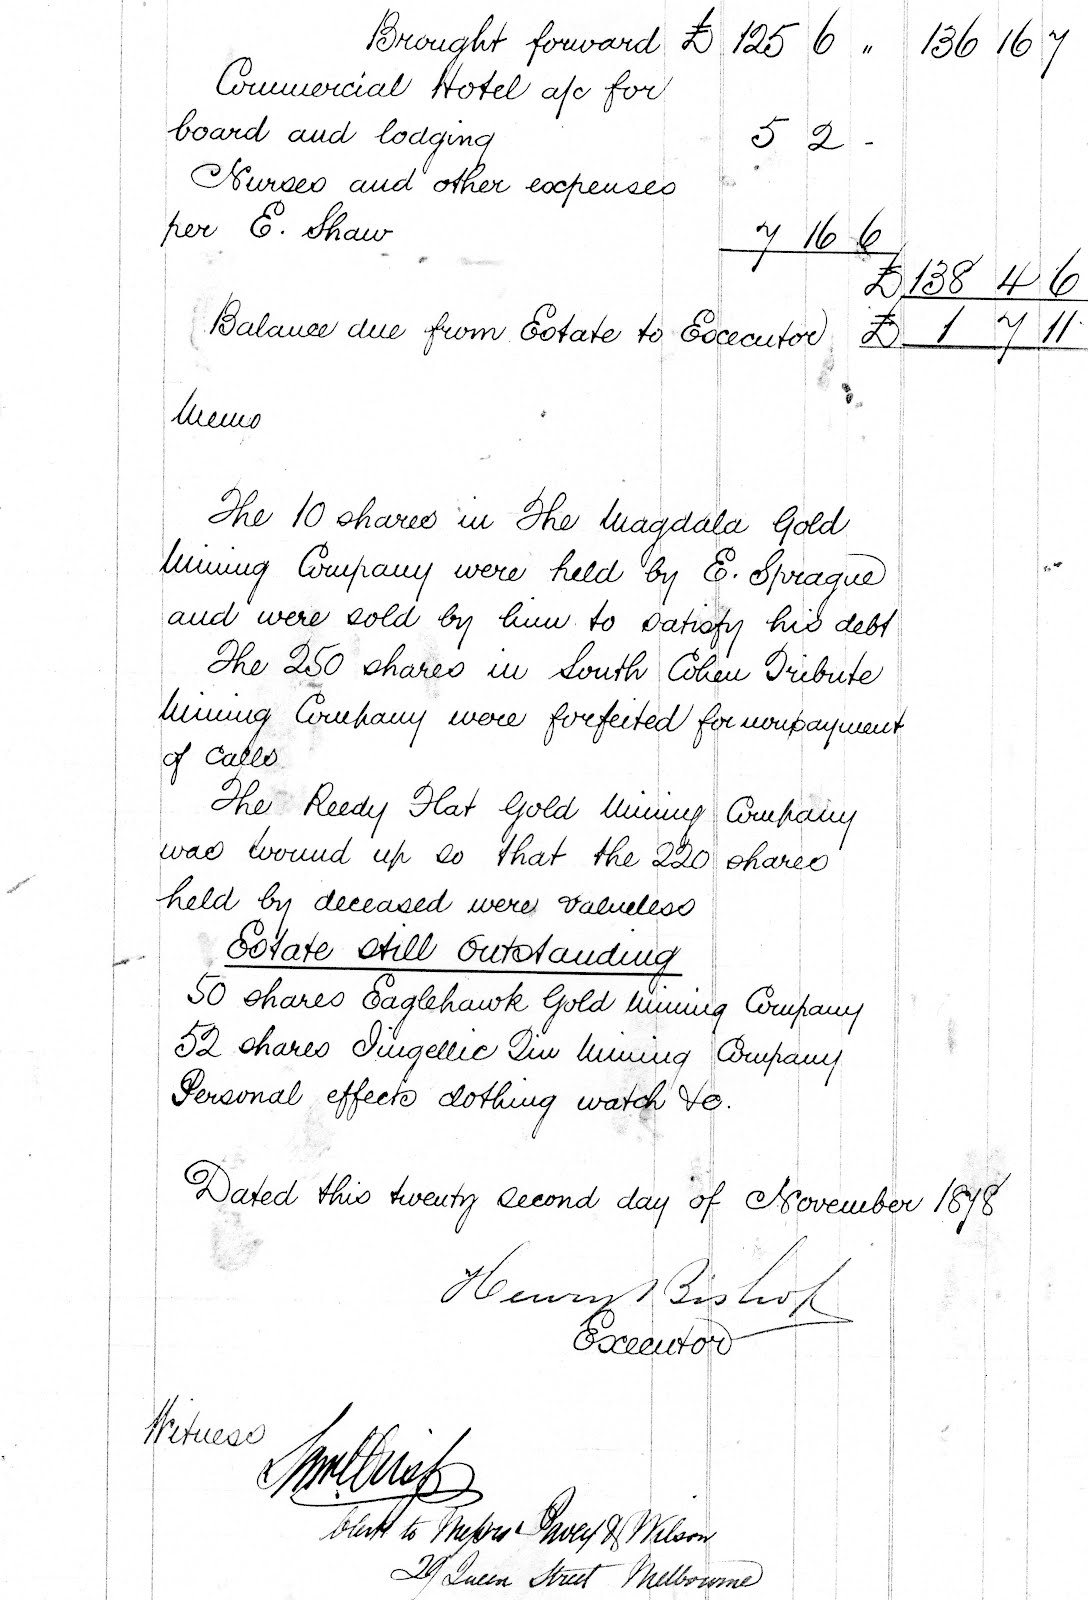 Brought forward £ 125 6 " 136 16 7
Commercial Hotel a/c for
board and lodging 5 2 -
Nurses and other expenses
per E. Shaw 7 16 6
£ 138 4 6
Balance due from Estate to Executor £ 1 7 11
Memo
The 10 shares in The Magdala Gold
Mining Company were held by E. Sprague
and were sold by him to satisfy his debt
The 250 shares in South Cohen Tribute
Mining Company were forfeited for nonpayment
of calls
The Reedy Flat Gold Mining Company
was wound up so that the 220 shares
held by deceased were valueless
Estate still outstanding
50 shares Eaglehawk Gold Mining Company
52 shares Jingellic Tin Mining Company
Personal effects clothing watch &c.
Dated this twenty second day of November 1878
Henry Bishop
Executor
Witness
Clerk to Messrs Pavey & Wilson
29 Queen Street Melbourne